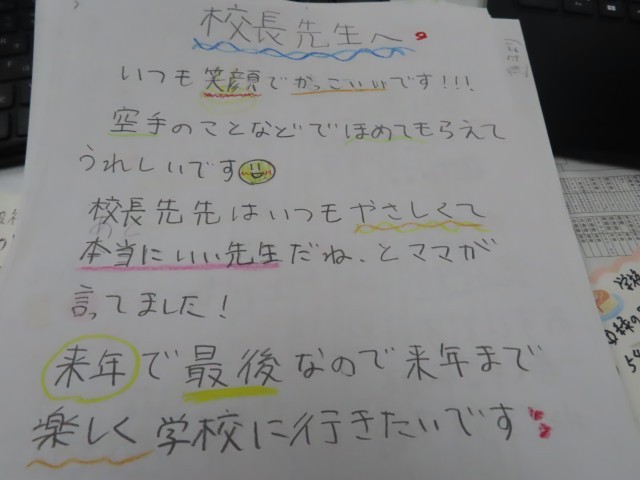 校長先生へ
いつも笑顔でかっこいいです!!!
空手のことなどでほめてもらえて
うれしいです
校長先先はいつもやさしくて
本当にいい先生だね、とママが
言ってました!
来年で最後なので来年まで
楽しく学校に行きたいです